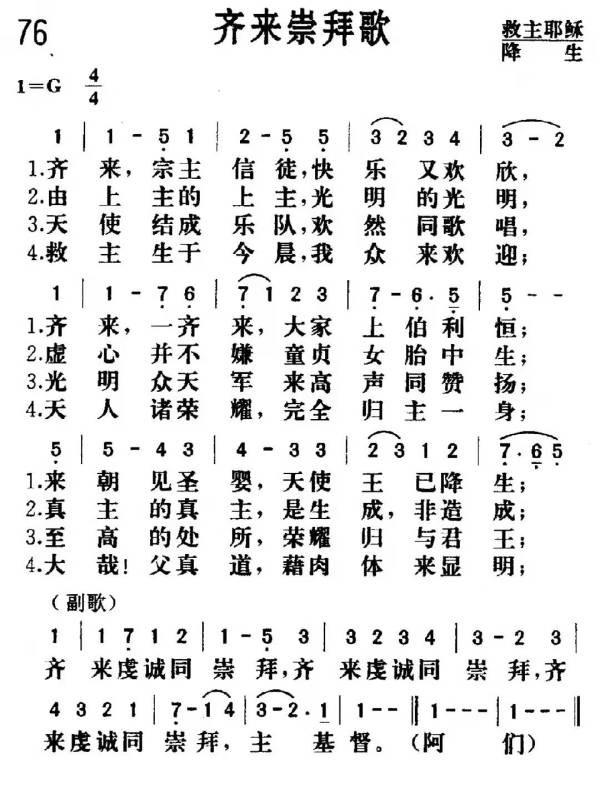 76 齐来崇拜歌 救主耶稣
降生
1=G 4/4
1 | 1 - 5̣ 1 | 2 - 5̣ 5̣ | 3 2 3 4 | 3 - 2
1.齐 来,宗主 信徒,快 乐又欢 欣,
2.由 上主的 上主,光 明的光 明,
3.天 使结成 乐队,欢 然同歌 唱,
4.救 主生于 今晨,我 众来欢 迎;
1 | 1 - 7̣ 6̣ | 7̣ 1 2 3 | 7̣ - 6̣ . 5̣ | 5̣ - -
1.齐 来,一齐 来,大家 上伯利 恒;
2.虚 心并不 嫌童贞 女胎中 生;
3.光 明众天 军来高 声同赞 扬;
4.天 人诸荣 耀,完全 归主一 身;
5̣ | 5 - 4 3 | 4 - 3 3 | 2 3 1 2 | 7̣ . 6̣ 5̣
1.来 朝见圣 婴,天使 王已降 生;
2.真 主的真 主,是生 成,非造 成;
3.至 高的处 所,荣耀 归与君 王;
4.大 哉!父真 道,藉肉 体来显 明;
(副歌)
1 | 1 7̣ 1 2 | 1 - 5̣ 3 | 3 2 3 4 | 3 - 2 3
齐 来虔诚同 崇拜,齐 来虔诚同 崇拜,齐
4 3 2 1 | 7̣ - 1 4 | 3 - 2 . 1 | 1 - - ‖ 1 - - - | 1 - - - ‖
来虔诚同 崇拜,主 基督。(阿们)